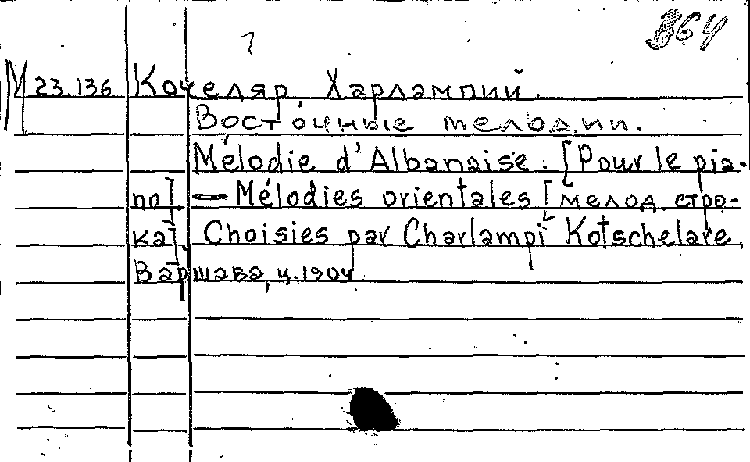 864
М 23.136 Кочеляр Харлампий.
Восточные мелодии.
Mélodie d'Albanaise. [Pour le pia-
no] — Mélodies orientales [мелод. стро-
ка]. Choisies par Charlampi Kotschelare.
Варшава, ц. 1904